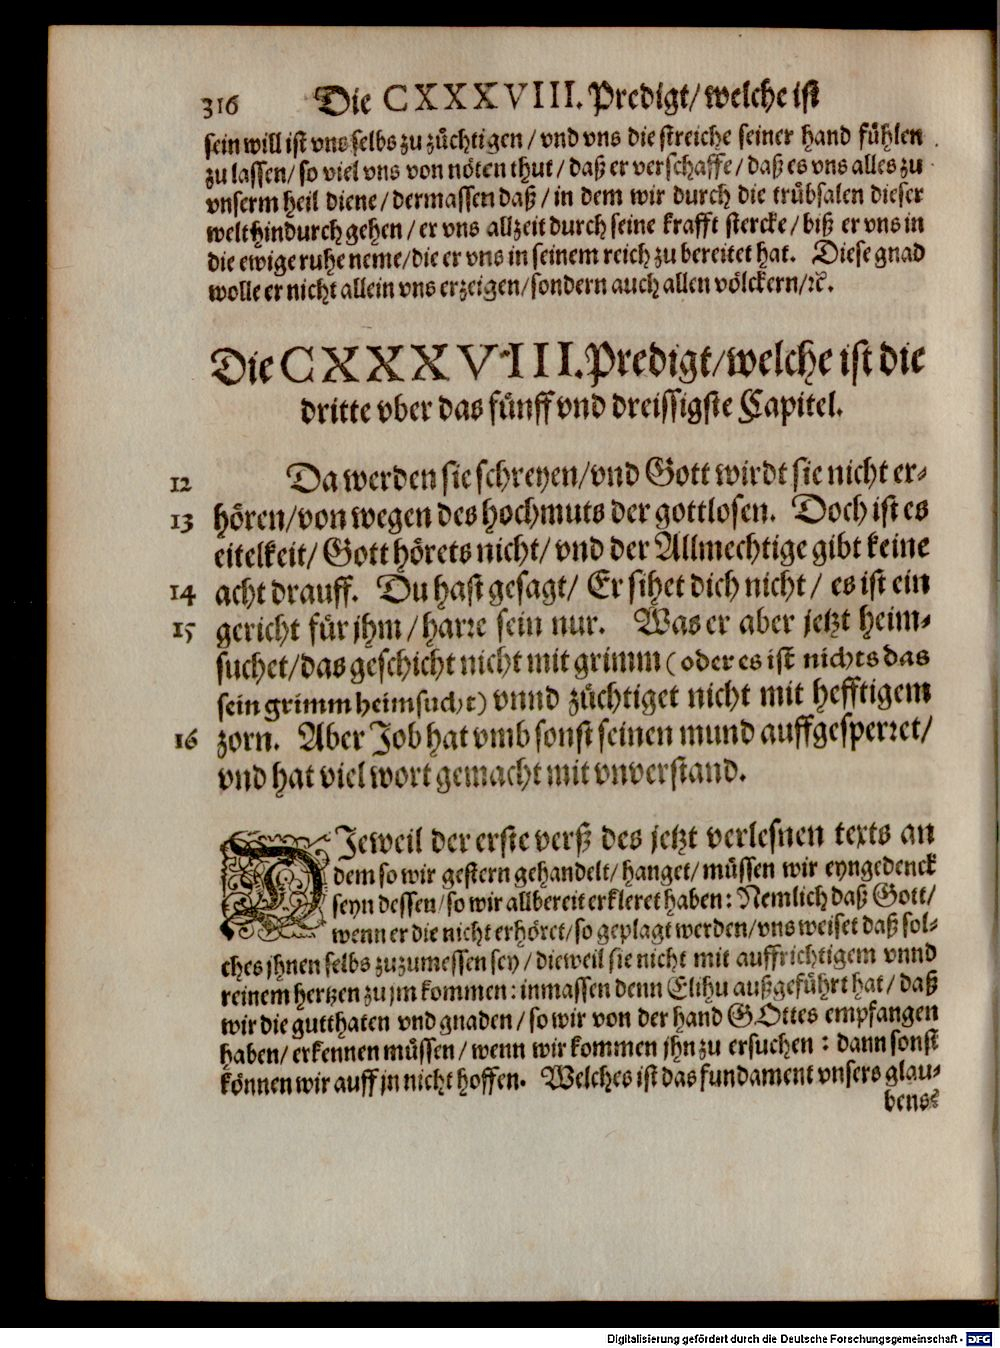 316 Die CXXXVIII. Predigt/ welche ist
sein will ist vns selbs zu züchtigen / vnd vns die streiche seiner hand fühlen
zu lassen/ so viel vns von nöten thut / daß er verschaffe / daß es vns alles zu
vnserm heil diene / dermassen daß / in dem wir durch die trübsalen dieser
welt hindurch gehen / er vns allzeit durch seine krafft stercke / biß er vns in
die ewige ruhe neme/ die er vns in seinem reich zu bereitet hat. Diese gnad
wolle er nicht allein vns erzeigen/ sondern auch allen völckern/ ꝛc.
Die CXXXVIII. Predigt/ welche ist die
dritte vber das fünff vnd dreissigste Capitel.
12 Da werden sie schreyen/ vnd Gott wirdt sie nicht er-
13 hören/ von wegen des hochmuts der gottlosen. Doch ist es
eitelkeit/ Gott hörets nicht/ vnd der Allmechtige gibt keine
14 acht drauff. Du hast gesagt/ Er sihet dich nicht / es ist ein
15 gericht für jhm / harre sein nur. Was er aber jetzt heim-
suchet/ das geschicht nicht mit grimm ( oder es ist nichts das
sein grimm heimsucht ) vnnd züchtiget nicht mit hefftigem
16 zorn. Aber Job hat vmb sonst seinen mund auffgesperret/
vnd hat viel wort gemacht mit vnverstand.
DJeweil der erste verß des jetzt verlesnen texts an
dem so wir gestern gehandelt/ hanget/ müssen wir eyngedenck
seyn dessen/ so wir allbereit erkleret haben: Nemlich daß Gott/
wenn er die nicht erhöret/ so geplagt werden/ vns weiset daß sol-
ches jhnen selbs zuzumessen sey / dieweil sie nicht mit auffrichtigem vnnd
reinem hertzen zu jm kommen : inmassen denn Elihu außgeführt hat / daß
wir die gutthaten vnd gnaden / so wir von der hand GOttes empfangen
haben/ erkennen müssen / wenn wir kommen jhn zu ersuchen : dann sonst
können wir auff jn nicht hoffen. Welches ist das fundament vnsers glau-
bens
Digitalisierung gefördert durch die Deutsche Forschungsgemeinschaft - DFG